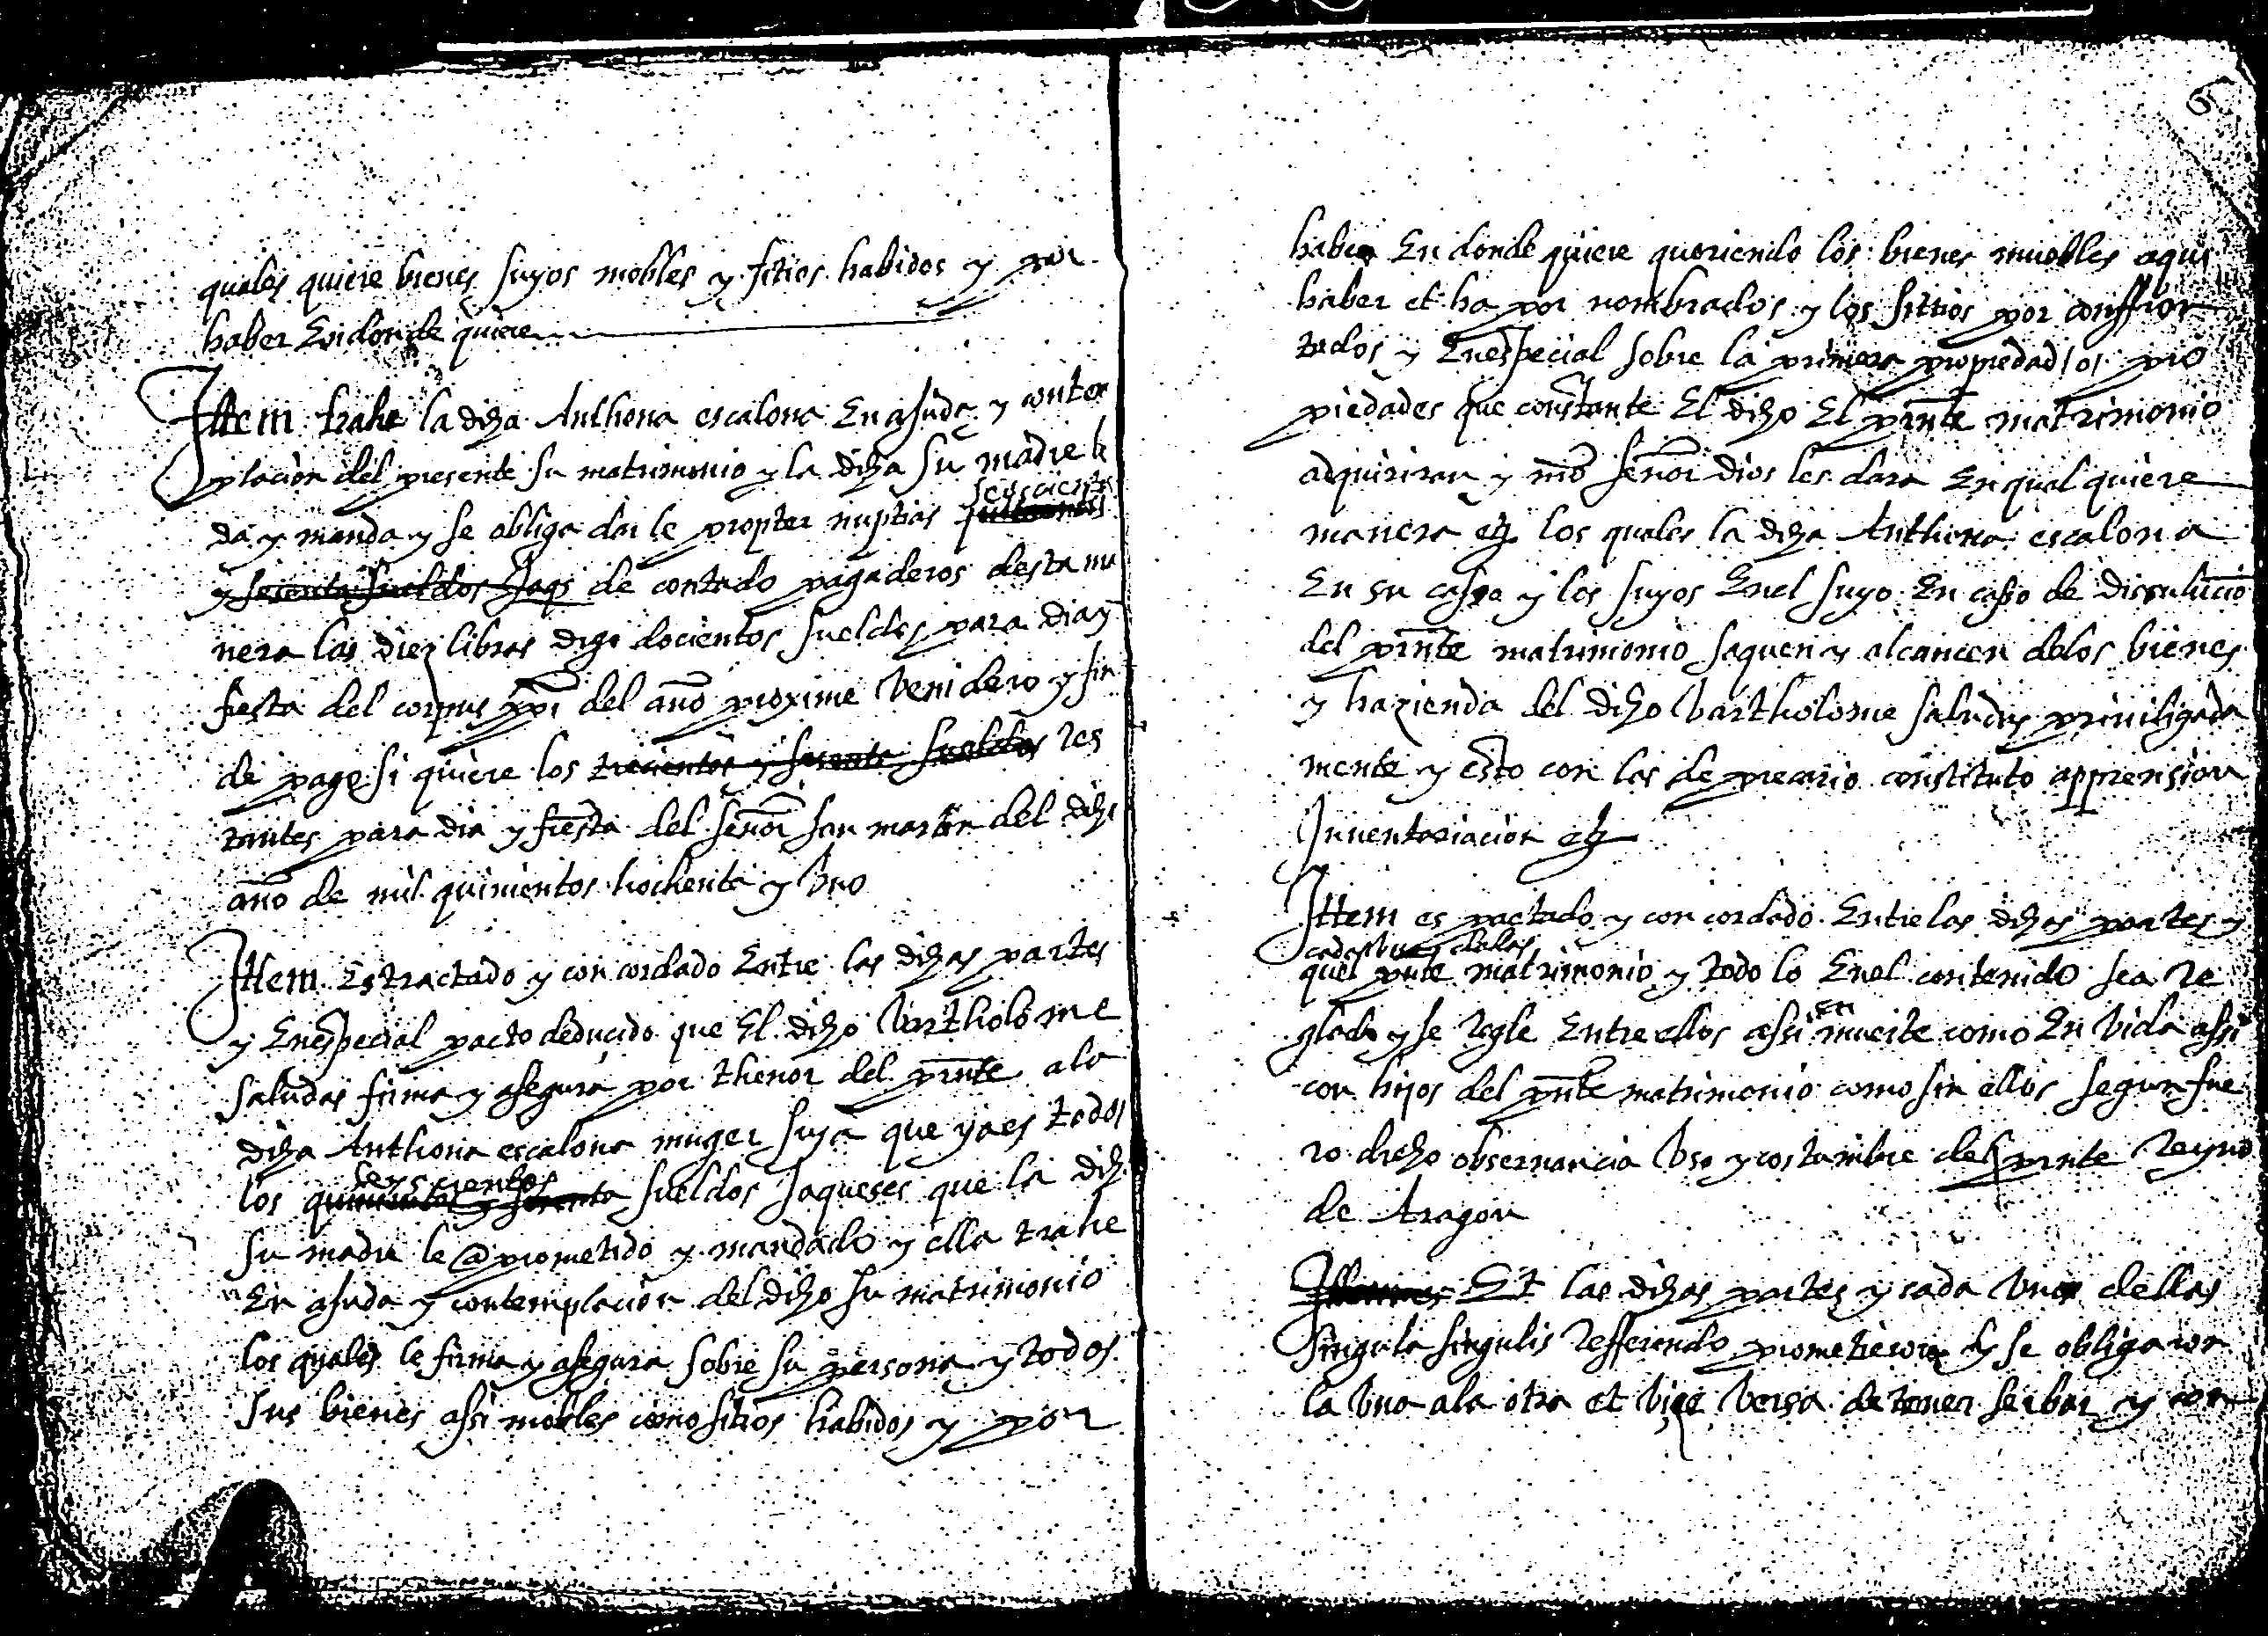 quales quiere bienes suyos mobles y sitios habidos y por
haber Endonde quiere
Ittem trahe la diha Anthona escalona En aJuda y contem
placion del presente su matrimonio y la diha su madre le
seyscientos
da y manda y se obliga darle propter nuptias quinientos
y sesenta sueldos Jaqs de contado pagaderos desta ma
nera las diez libras digo docientos sueldos para dia y
fiesta del corpus xpi del año proxime Venidero y fin
de pago si quiere los trecientos y sesenta sueldos res
tantes para dia y fiesta del señor san martin del diho
año de mil quinientos hochenta y Uno
Ittem Es tractado y concordado Entre las dihas partes
y Enespecial pacto deducido que El diho Bartholome
saludas firma y asegura por thenor del prnte ala
diha Anthona escalona muger suya que ya es todos
seyscientos
los quinientos y sesenta sueldos Jaqueses que la dih
su madre le @ prometido y mandado y ella trahe
En aJuda y contemplacion del diho su matrimonio
los quales le firma y asegura sobre su persona y todos
sus bienes assi mobles como sitios habidos y por
6
haber En donde quiere queriendo los bienes muebles aqui
haber et ha por nombrados y los sittios por conffron
tados y Enespecial sobre la primera propiedad /o/ pro
piedades que constante El diho El prnte matrimonio
adquiriran y nro señor dios les dara En qual quiere
manera etz los quales la diha Anthona escalona
En su casso y los suyos Enel suyo En casso de dissulucio
del prnte matrimonio saquen y alcancen delos bienes
y hazienda del diho Bartholome saludas priuiligada
mente y esto con las de precario constituto apprension
Inuentariacion etz
Ittem es pactado y concordado Entre las dihas partes y
cada Una dellas
quel pnte matrimonio y todo lo Enel contenido sea Re
en
glado y se Regle Entre ellos assi muerte como En Vida assi
con hijos del pnte matrimonio como sin ellos segun fue
ro dreho obseruancia Uso y costumbre del prnte Reyno
de Aragon
Et las dihas partes y cada Una dellas
singula singulis Refferiendo prometieron y se obligaron
la Una ala otra et Viçe Versa de tener serbar y con